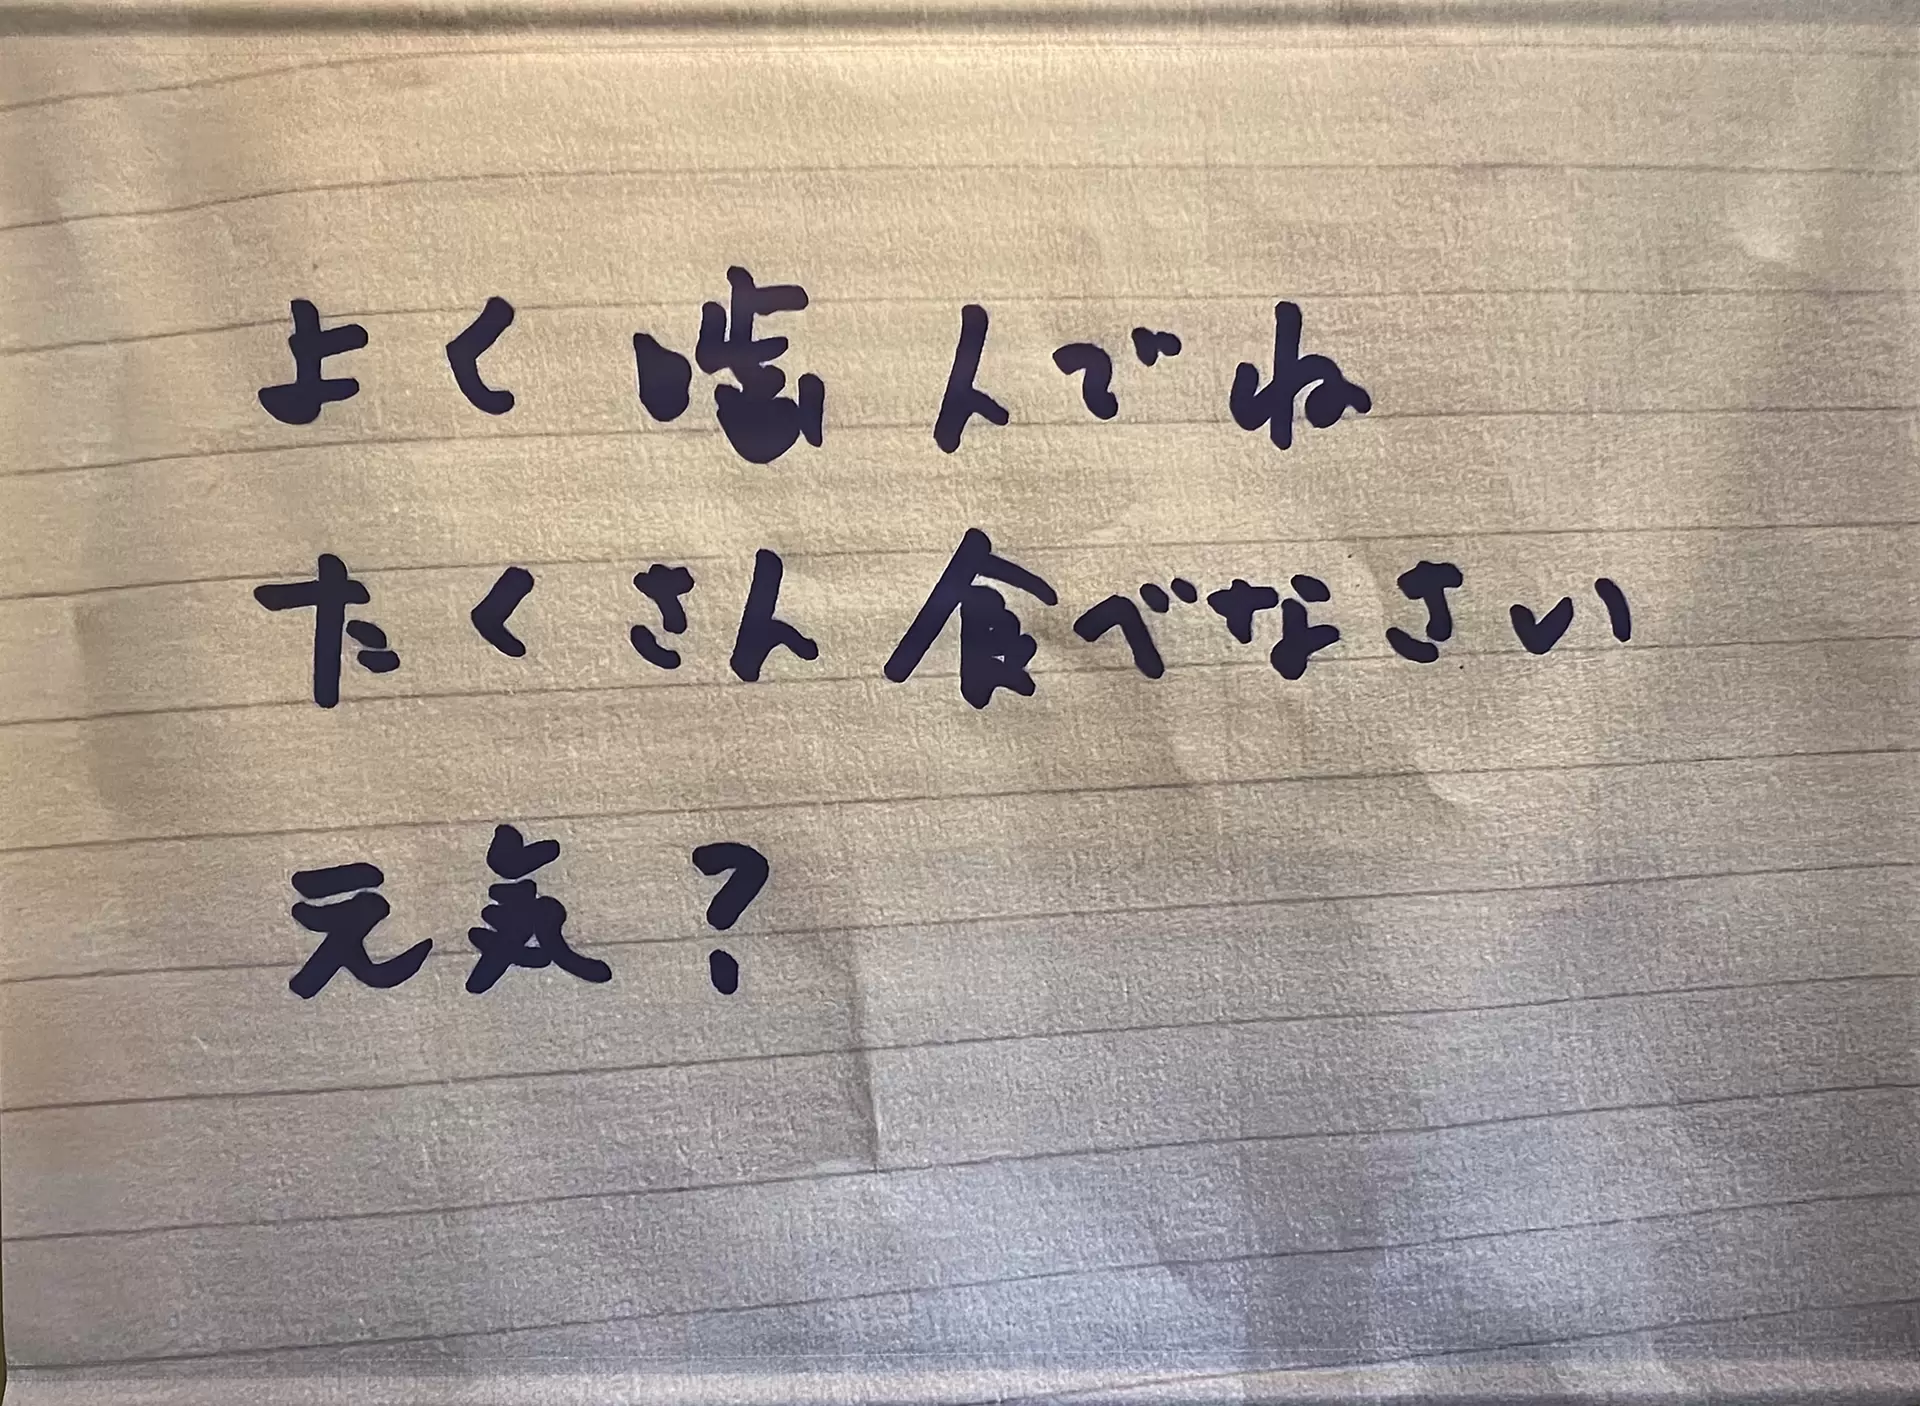 よく噛んでね
たくさん食べなさい
元気?